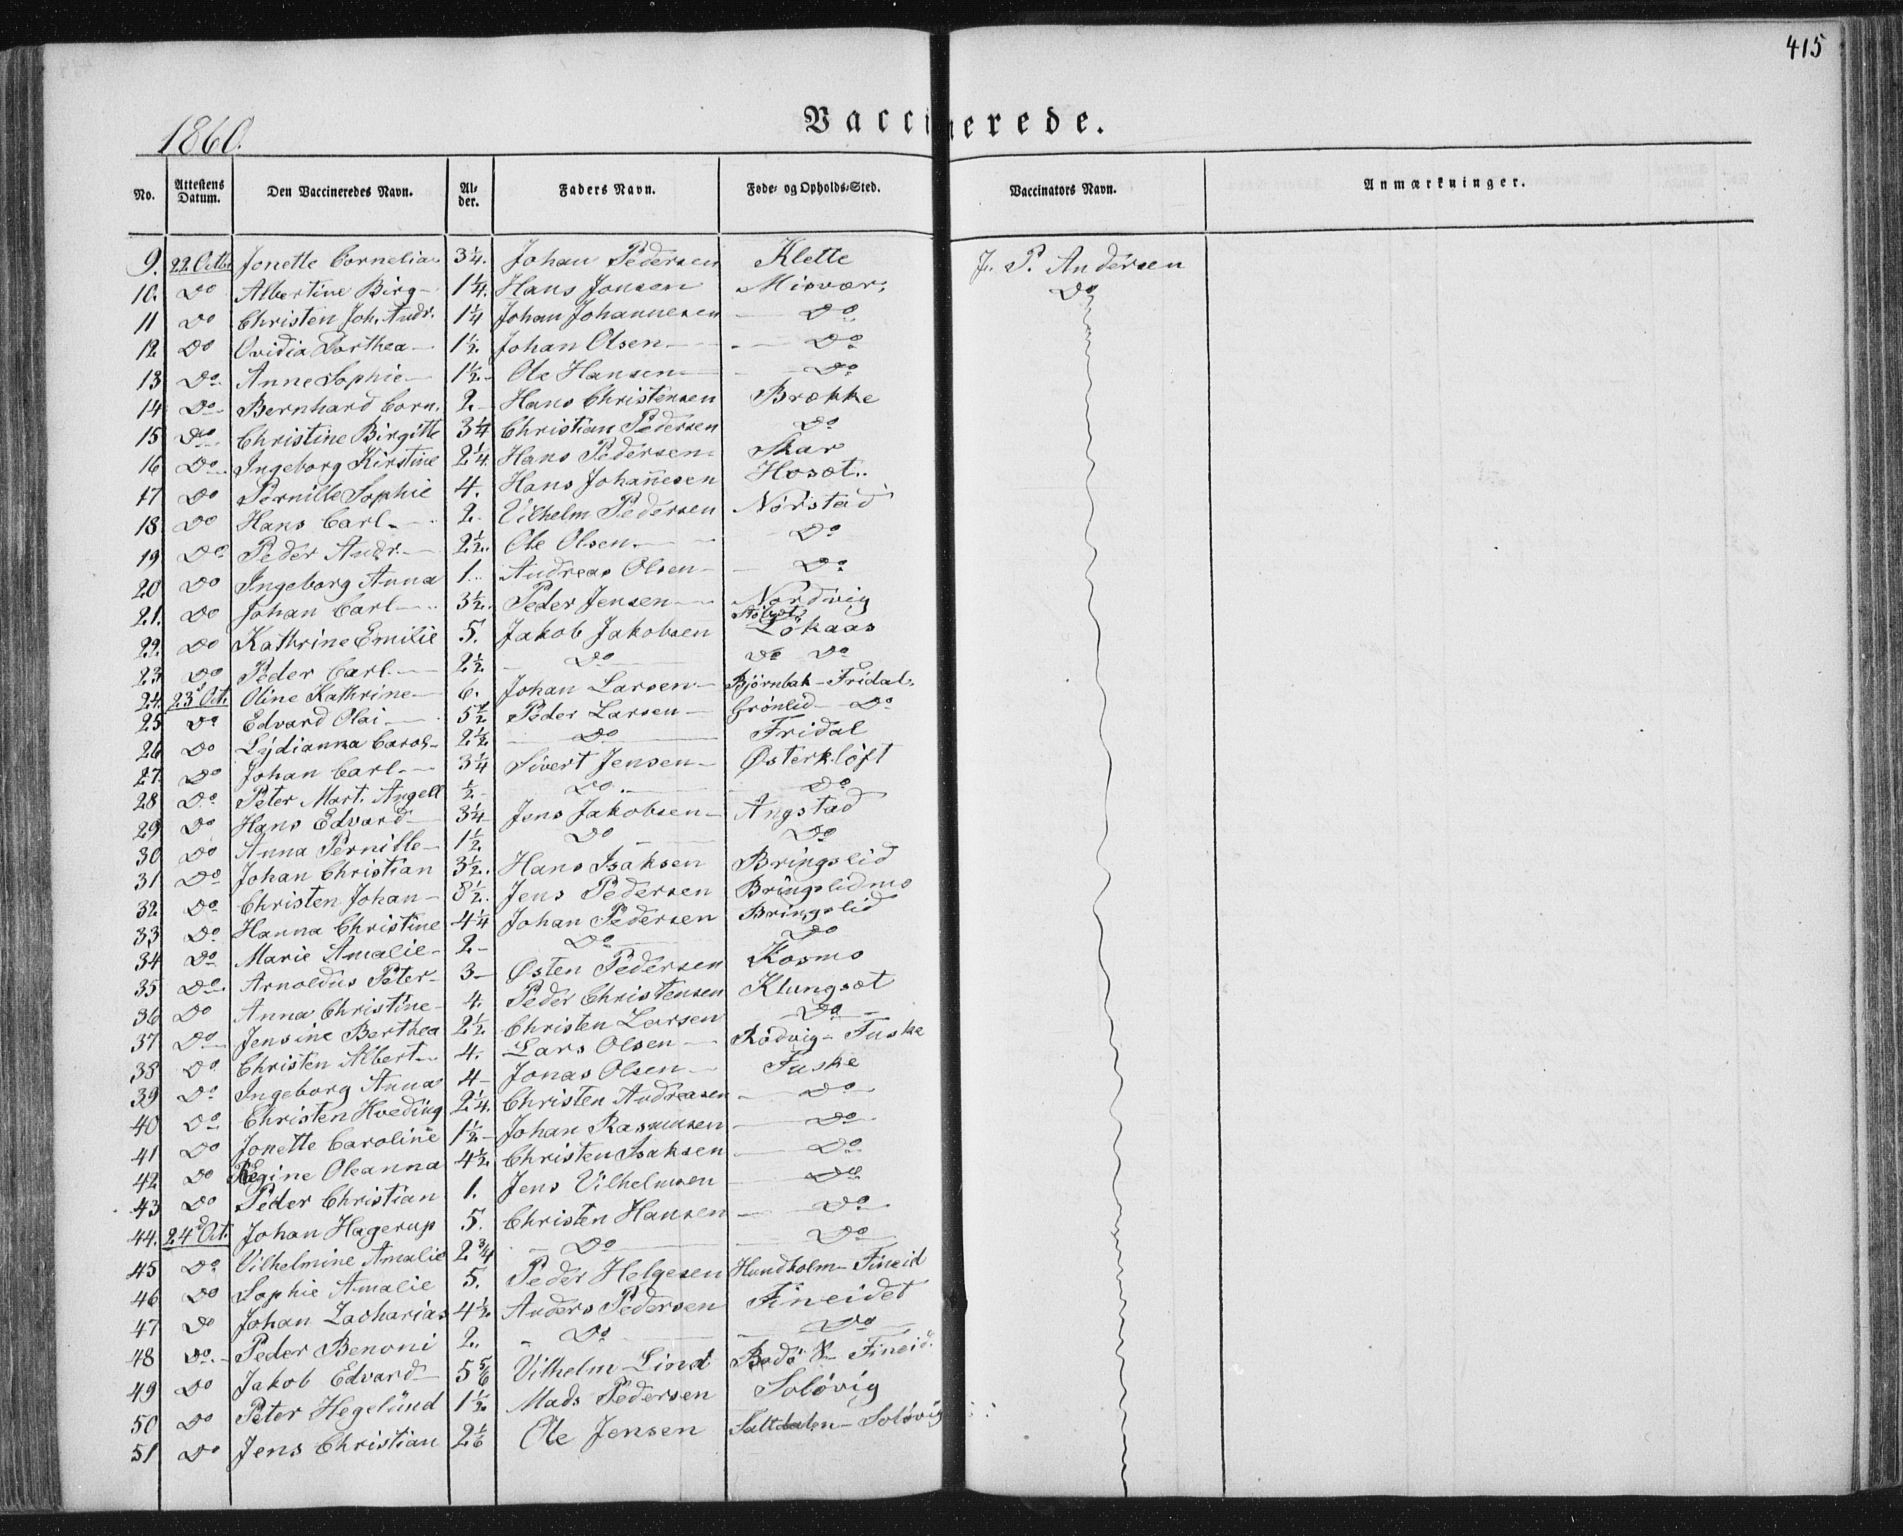 415
1860.
Vaccinerede.
No. Attestens Datum. Den Vaccineredes Navn. Al-der. Faders Navn. Føde- og Opholds-Sted. Vaccinators Navn. Anmærkninger.
9. 22 Octbr Jonette Cornelia 3¼. Johan Pedersen Klette J. P. Andersen
10. Do Albertine Birg- 1¼. Hans Jonsen Misvær. Do
11 Do Christen Joh. Andr. 1¼ Johan Johannesen Do
12. Do Ovidia Dorthea 1½. Johan Olsen Do
13 Do. Anne Sophie 1½. Ole Hansen Do
14 Do Bernhard Corn. 2 Hans Christensen Brække
15 Do Christine Birgitte 3¼ Christian Pedersen Do
16 Do Ingeborg Kirstine 2¼. Hans Pedersen Skar
17 Do Pernille Sophie 4. Hans Johañesen Hosæt.
18 Do Hans Carl 2. Vilhelm Pedersen Nórstad
19 Do Peder Andr. 2½. Ole Olsen Do
20 Do Ingeborg Anna 1. Andreas Olsen Do
21. Do Johan Carl 3½. Peder Jensen Nordvig
22. Do Kathrine Emilie 5. Jakob Jakobsen Lökaas
23 Do Peder Carl 2½ Do Do Do
24. 23d Oct. Oline Kathrine 6. Johan Larsen Bjørnbak - Fridal.
25 Do Edvard Olai 5½ Peder Larsen Grónlid - Do
26 Do Lydianna Carol- 2½ Do Fridal
27. Do Johan Carl 3¼ Sivert Jensen Østerkløft
28 Do Peter Mart. Angell ½ Do Do
29 Do Hans Edvard 3¼ Jens Jakobsen Angstad
30 Do Anna Pernille 1½ Do Do
31 Do Johan Christian 3½. Hans Isaksen Bringslid
32 Do Christen Johan 3½. Jens Pedersen Bringslidmo
33 Do Hanna Christine 4¼ Johan Pedersen Bringslid
34 Do Marie Amalie 2 Do Do
35 Do Arnoldus Peter 3 Østen Pedersen Kosmo
36 Do Anna Christine 4. Peder Christensen Klungsæt
37 Do Jensine Berthea 2½ Christen Larsen Do
38 Do Christen Albert 4. Lars OlsenRódvig - Fuske
39 Do Ingeborg Anna 4 Jonas Olsen Fuske
40 Do Christen Hveding 2¼. Christen Andreasen Do
41 Do Jonette Caroline 1½ Johan Rasmusen Do
42 Do Regine Oleanna 4½ Christen Isaksen Do
43 Do Peder Christian 1. Jens Vilhelmsen Do
44. 24d Oct. Johan Hagerup 5. Christen Hansen Do
45 Do Vilhelmine Amalie 2¾ Do Do
46 Do Sophie Amalie 5. Peder Helgesen Hundholm - Fineid
47 Do Johan Zacharias 4½. Anders Pedersen Fineidet
48 Do Peder Benoni 2. Do Do
49 Do Jakob Edvard 5⅚ Vilhelm Lind Bodö & Fineid.
50 Do Peter Hegelünd 1½ Mads Pedersen Solóvig
51 Do Jens Christian 2⅙ Ole Jensen Saltdalen - Solóvig